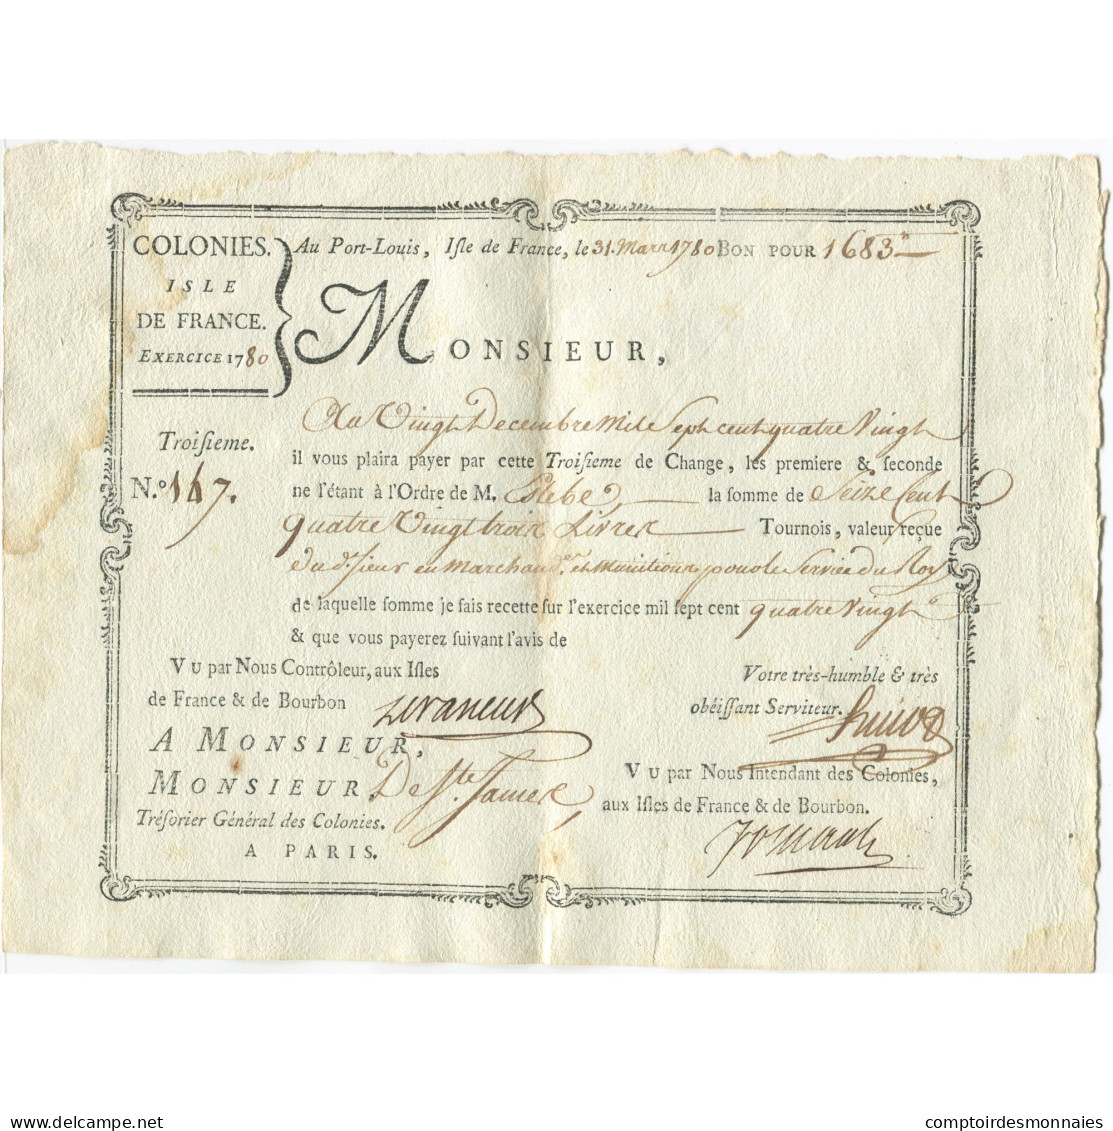 COLONIES.
ISLE
DE FRANCE.
EXERCICE 1780
Au Port-Louis, Isle de France, le 31. Mars 1780 BON POUR 1683"
MONSIEUR,
Au Vingt Decembre Mile Sept cent quatre Vingt
Troisieme.
il vous plaira payer par cette Troisieme de Change, les premiere & seconde
N.° 147.
ne l'étant à l'Ordre de M. Estebe la somme de Seize Cent
quatre Vingt trois Livres Tournois, valeur reçue
du d. Sieur en Marchand.es et Munitions pour le Service du Roy
de laquelle somme je fais recette sur l'exercice mil sept cent quatre Vingt
& que vous payerez suivant l'avis de
VU par Nous Contrôleur, aux Isles
de France & de Bourbon
Votre très-humble & très
obéissant Serviteur.
A MONSIEUR,
MONSIEUR, De Ste. James
Trésorier Général des Colonies.
A PARIS.
VU par Nous Intendant des Colonies,
aux Isles de France & de Bourbon.
delcampe.net
comptoirdesmonnaies